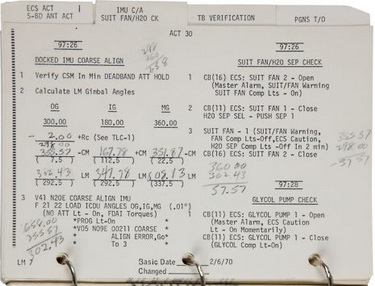 ECS ACT
S-BD ANT ACT
IMU C/A
SUIT FAN/H2O CK
TB VERIFICATION
PGNS T/O
ACT 30
97:26
DOCKED IMU COARSE ALIGN
1 Verify CSM In Min DEADBAND ATT HOLD
2 Calculate LM Gimbal Angles
OG IG MG
300.00 180.00 360.00
- 2.00 +Rc (See TLC-1)
298.00
355.57 -CM 167.78 +CM 351.87 -CM
(7.5) (112.5) (22.5)
302.43 LM 347.78 LM 008.13 LM
(292.5) (292.5) (337.5)
3 V41 N20E COARSE ALIGN IMU
F 21 22 LOAD ICDU ANGLES OG,IG,MG (.01°)
(NO ATT Lt - On, FDAI Torques)
*PROG Lt-On *
*V05 NO9E 00211 COARSE *
* ALIGN ERROR,Go*
* To 3 *
658.00
355.57
302.43
97:26
SUIT FAN/H2O SEP CHECK
1 CB(16) ECS: SUIT FAN 2 - Open
(Master Alarm, SUIT/FAN Warning
SUIT FAN Comp Lts - On)
2 CB(11) ECS: SUIT FAN 1 - Close
H2O SEP SEL - PUSH SEP 1
3 SUIT FAN - 1 (SUIT/FAN Warning,
FAN Comp Lts-Off,ECS Caution,
H2O SEP Comp Lts -Off In 2 min)
CB(16) ECS: SUIT FAN 2 - Close
360.00
302.43
57.57
97:28
GLYCOL PUMP CHECK
1 CB(11) ECS: GLYCOL PUMP 1 - Open
(Master Alarm, ECS Caution
Lt - On Momentarily)
CB(11) ECS: GLYCOL PUMP 1 - Close
(GLYCOL Comp Lt-On)
LM
Basic Date 2/6/70
Changed